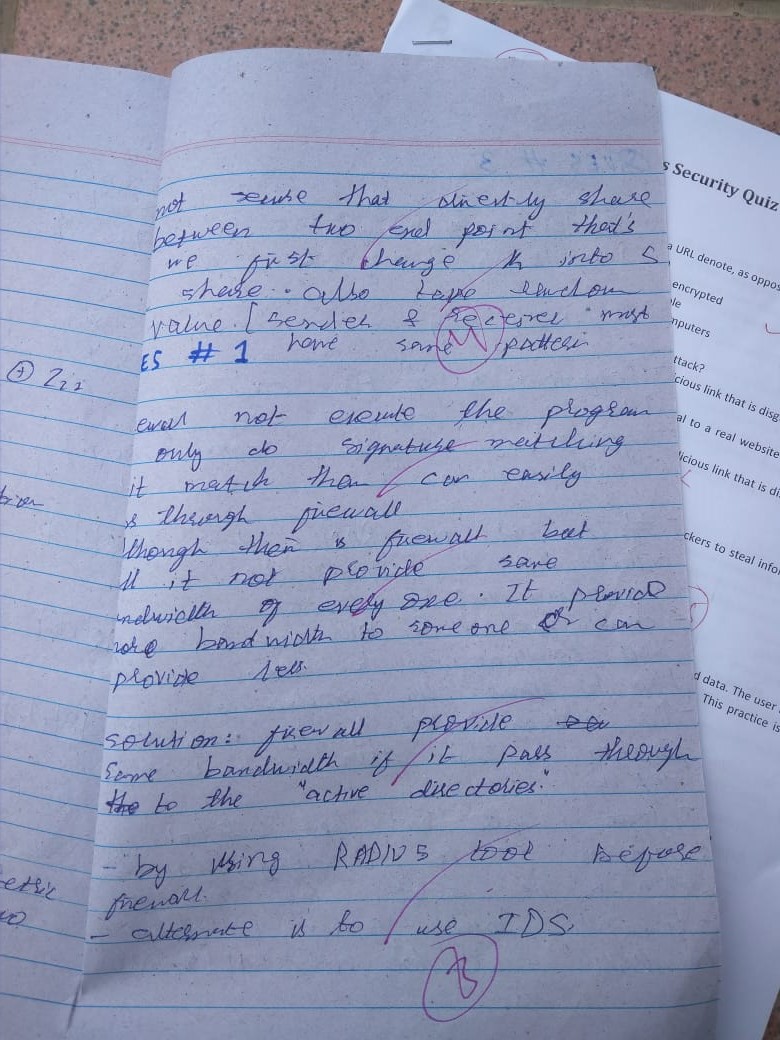 not secure that directly share
between two end point that's
we first change k into S
share. also take random
value. [sender & receiver must
ES # 1 have same pattern
ewall not execute the program
only do signature matching
it match then can easily
s through firewall
lthough then is firewall but
ll it not provide same
ndwidth of every one. It provid
ore bandwidth to some one or can
provide less.
solution: firewall provide
same bandwidth if it pass through
to the "active directories."
- by using RADIUS tool before
firewall.
- alternate is to use IDS.
etric
s Security Quiz
a URL denote, as oppos
encrypted
le
mputers
ttack?
cious link that is disg
al to a real website
licious link that is di
ckers to steal infor
d data. The user
This practice is